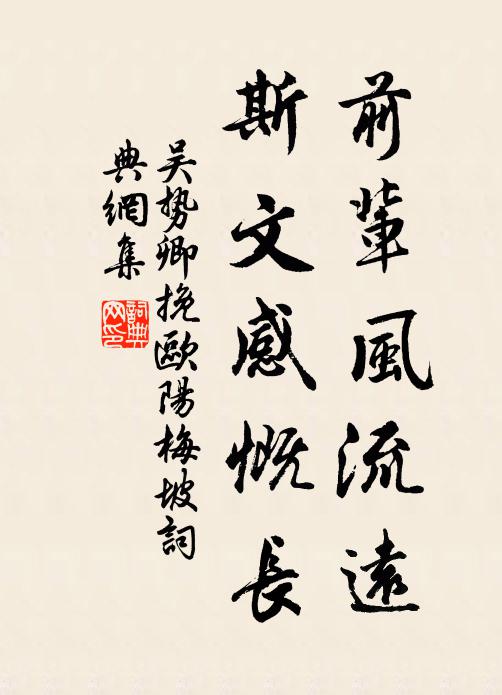 前輩風流遠
斯文感慨長
吴勢卿挽歐陽梅坡詞
典網集
詞典
网印